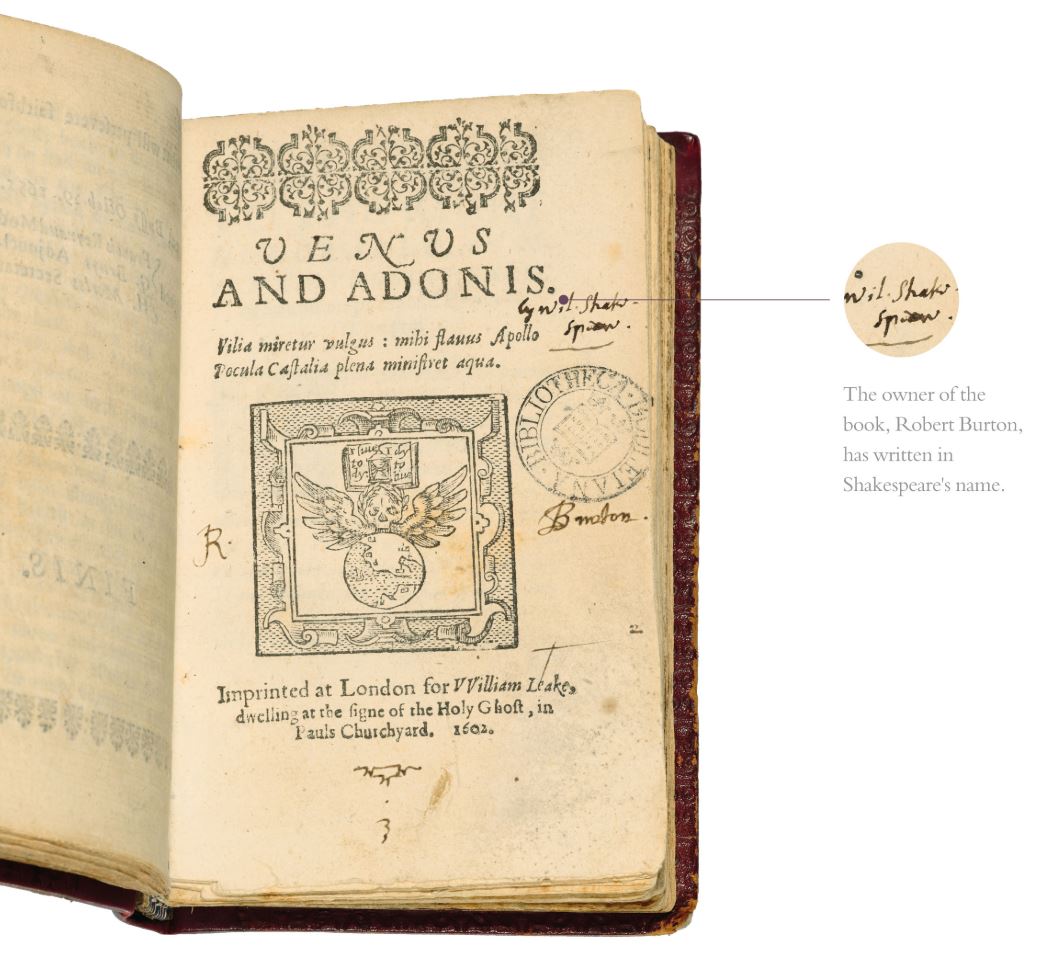 VENUS
AND ADONIS.
by Wil. Shake-
spear.
Vilia miretur vulgus : mihi flauus Apollo
Pocula Caſtalia plena miniſtret aqua.
BIBLIOTHECA BODLEIANA
R.
Burton.
Imprinted at London for VVilliam Leake,
dwelling at the ſigne of the Holy Ghoſt, in
Pauls Churchyard. 1602.
3
FINIS.
Wil. Shake-
spear.
The owner of the
book, Robert Burton,
has written in
Shakespeare's name.